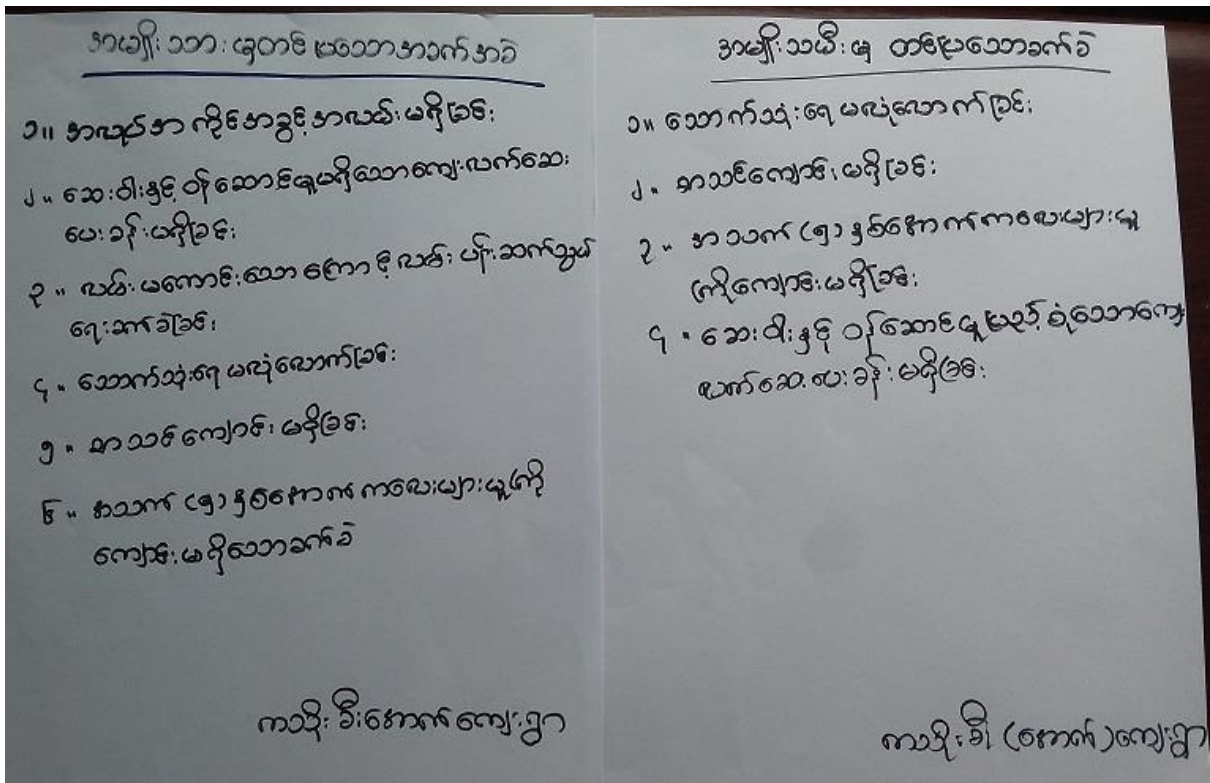 အမျိုးသားမှတင်ပြသောအခက်အခဲ
၁။ အလုပ်အကိုင်အခွင့်အလမ်းမရှိခြင်း
၂။ ဆေးဝါးနှင့်ဝန်ဆောင်မှုမရှိသောကျေးလက်ဆေး
ပေးခန်းမရှိခြင်း
၃။ လမ်းမကောင်းသောကြောင့်လမ်းပန်းဆက်သွယ်
ရေးခက်ခဲခြင်း
၄။ သောက်သုံးရေမလုံလောက်ခြင်း
၅။ စာသင်ကျောင်းမရှိခြင်း
၆။ အသက်(၅)နှစ်အောက်ကလေးများမူကြို
ကျောင်းမရှိသောခက်ခဲ
ကသိုးခီးအောက်ကျေးရွာ
အမျိုးသမီးမှ တင်ပြသောခက်ခဲ
၁။ သောက်သုံးရေမလုံလောက်ခြင်း
၂။ စာသင်ကျောင်းမရှိခြင်း
၃။ အသက်(၅)နှစ်အောက်ကလေးများမူ
ကြိုကျောင်းမရှိခြင်း
၄။ ဆေးဝါးနှင့်ဝန်ဆောင်မှုပြည့်စုံသောကျေး
လက်ဆေးပေးခန်းမရှိခြင်း
ကသိုးခီး(အောက်)ကျေးရွာ